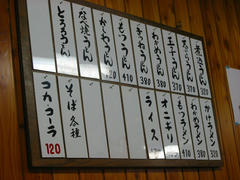 煮込うどん
天ぷらうどん
玉子うどん
わかめうどん 380
きつねうどん 380
もつうどん 410
なべ焼うどん
とろろうどん
ラーメン 320
わかめラーメン 380
もつラーメン
オニギリ
ライス
そば各種
コカコーラ 120